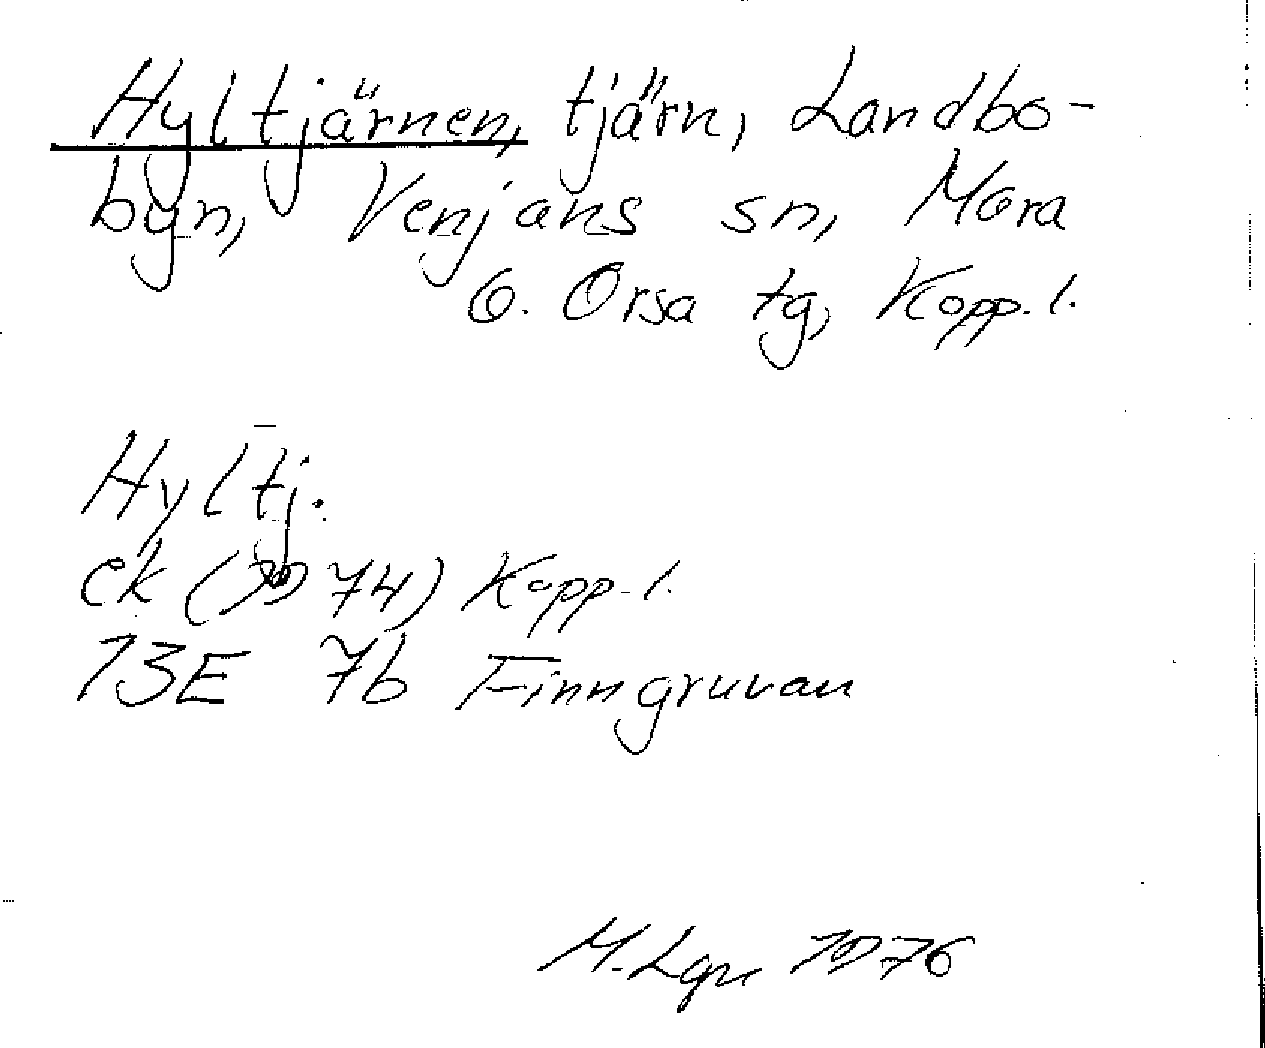 Hyltjärnen, tjärn, Landbo-
byn, Venjans sn, Mora
o. Orsa tg, Kopp. l.
Hyltj.
ek (1974) Kopp. l.
13E 7b Finngruvan
M. Lgn 1976